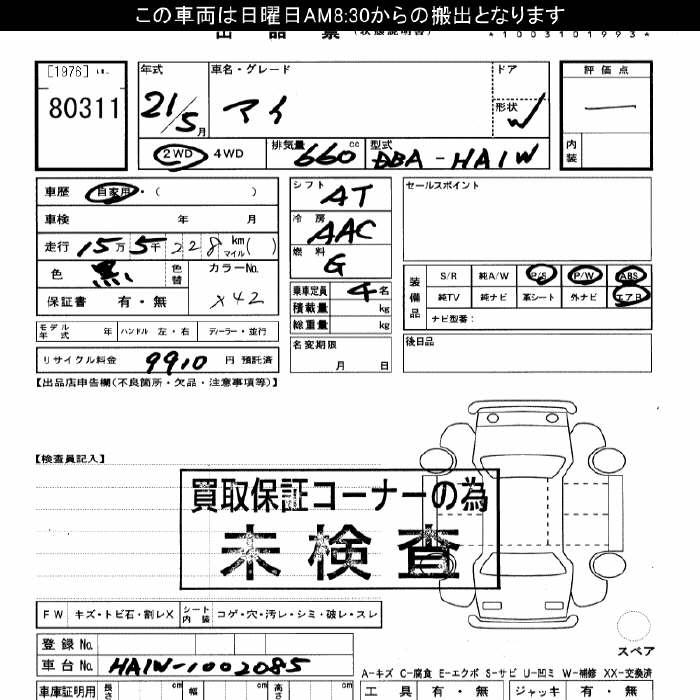 この車両は日曜日AM8:30からの搬出となります
出品票 (状態説明書)
*1003101993*
[1976]
80311
年式 21/5月
車名・グレード アイ
ドア
形状 W
評価点 —
内装
2WD 4WD
排気量 660 cc
型式 DBA-HA1W
車歴 自家用・( )
車検 年 月
走行 15万5千228km マイル( )
色 黒 色替 カラーNo. X42
保証書 有・無
シフト AT
冷房 AAC
燃料 G
乗車定員 4名
積載量 kg
総重量 kg
セールスポイント
装備品 S/R 純A/W P/S P/W ABS
純TV 純ナビ 革シート 外ナビ エアB
ナビ型番:
モデル年式 年 ハンドル 左・右 ディーラー・並行
リサイクル料金 9910 円 預託済
名変期限 月 日
後日品
【出品店申告欄(不良箇所・欠品・注意事項等)】
【検査員記入】
買取保証コーナーの為
未検査
FW キズ・トビ石・割レX シート内装 コゲ・穴・汚レ・シミ・破レ・スレ
登録No.
車台No. HA1W-1002085
スペア
A-キズ C-腐食 E-エクボ S-サビ U-凹ミ W-補修 XX-交換済
車庫証明用 長さ cm 幅 cm 高さ cm
工具 有・無 ジャッキ 有・無